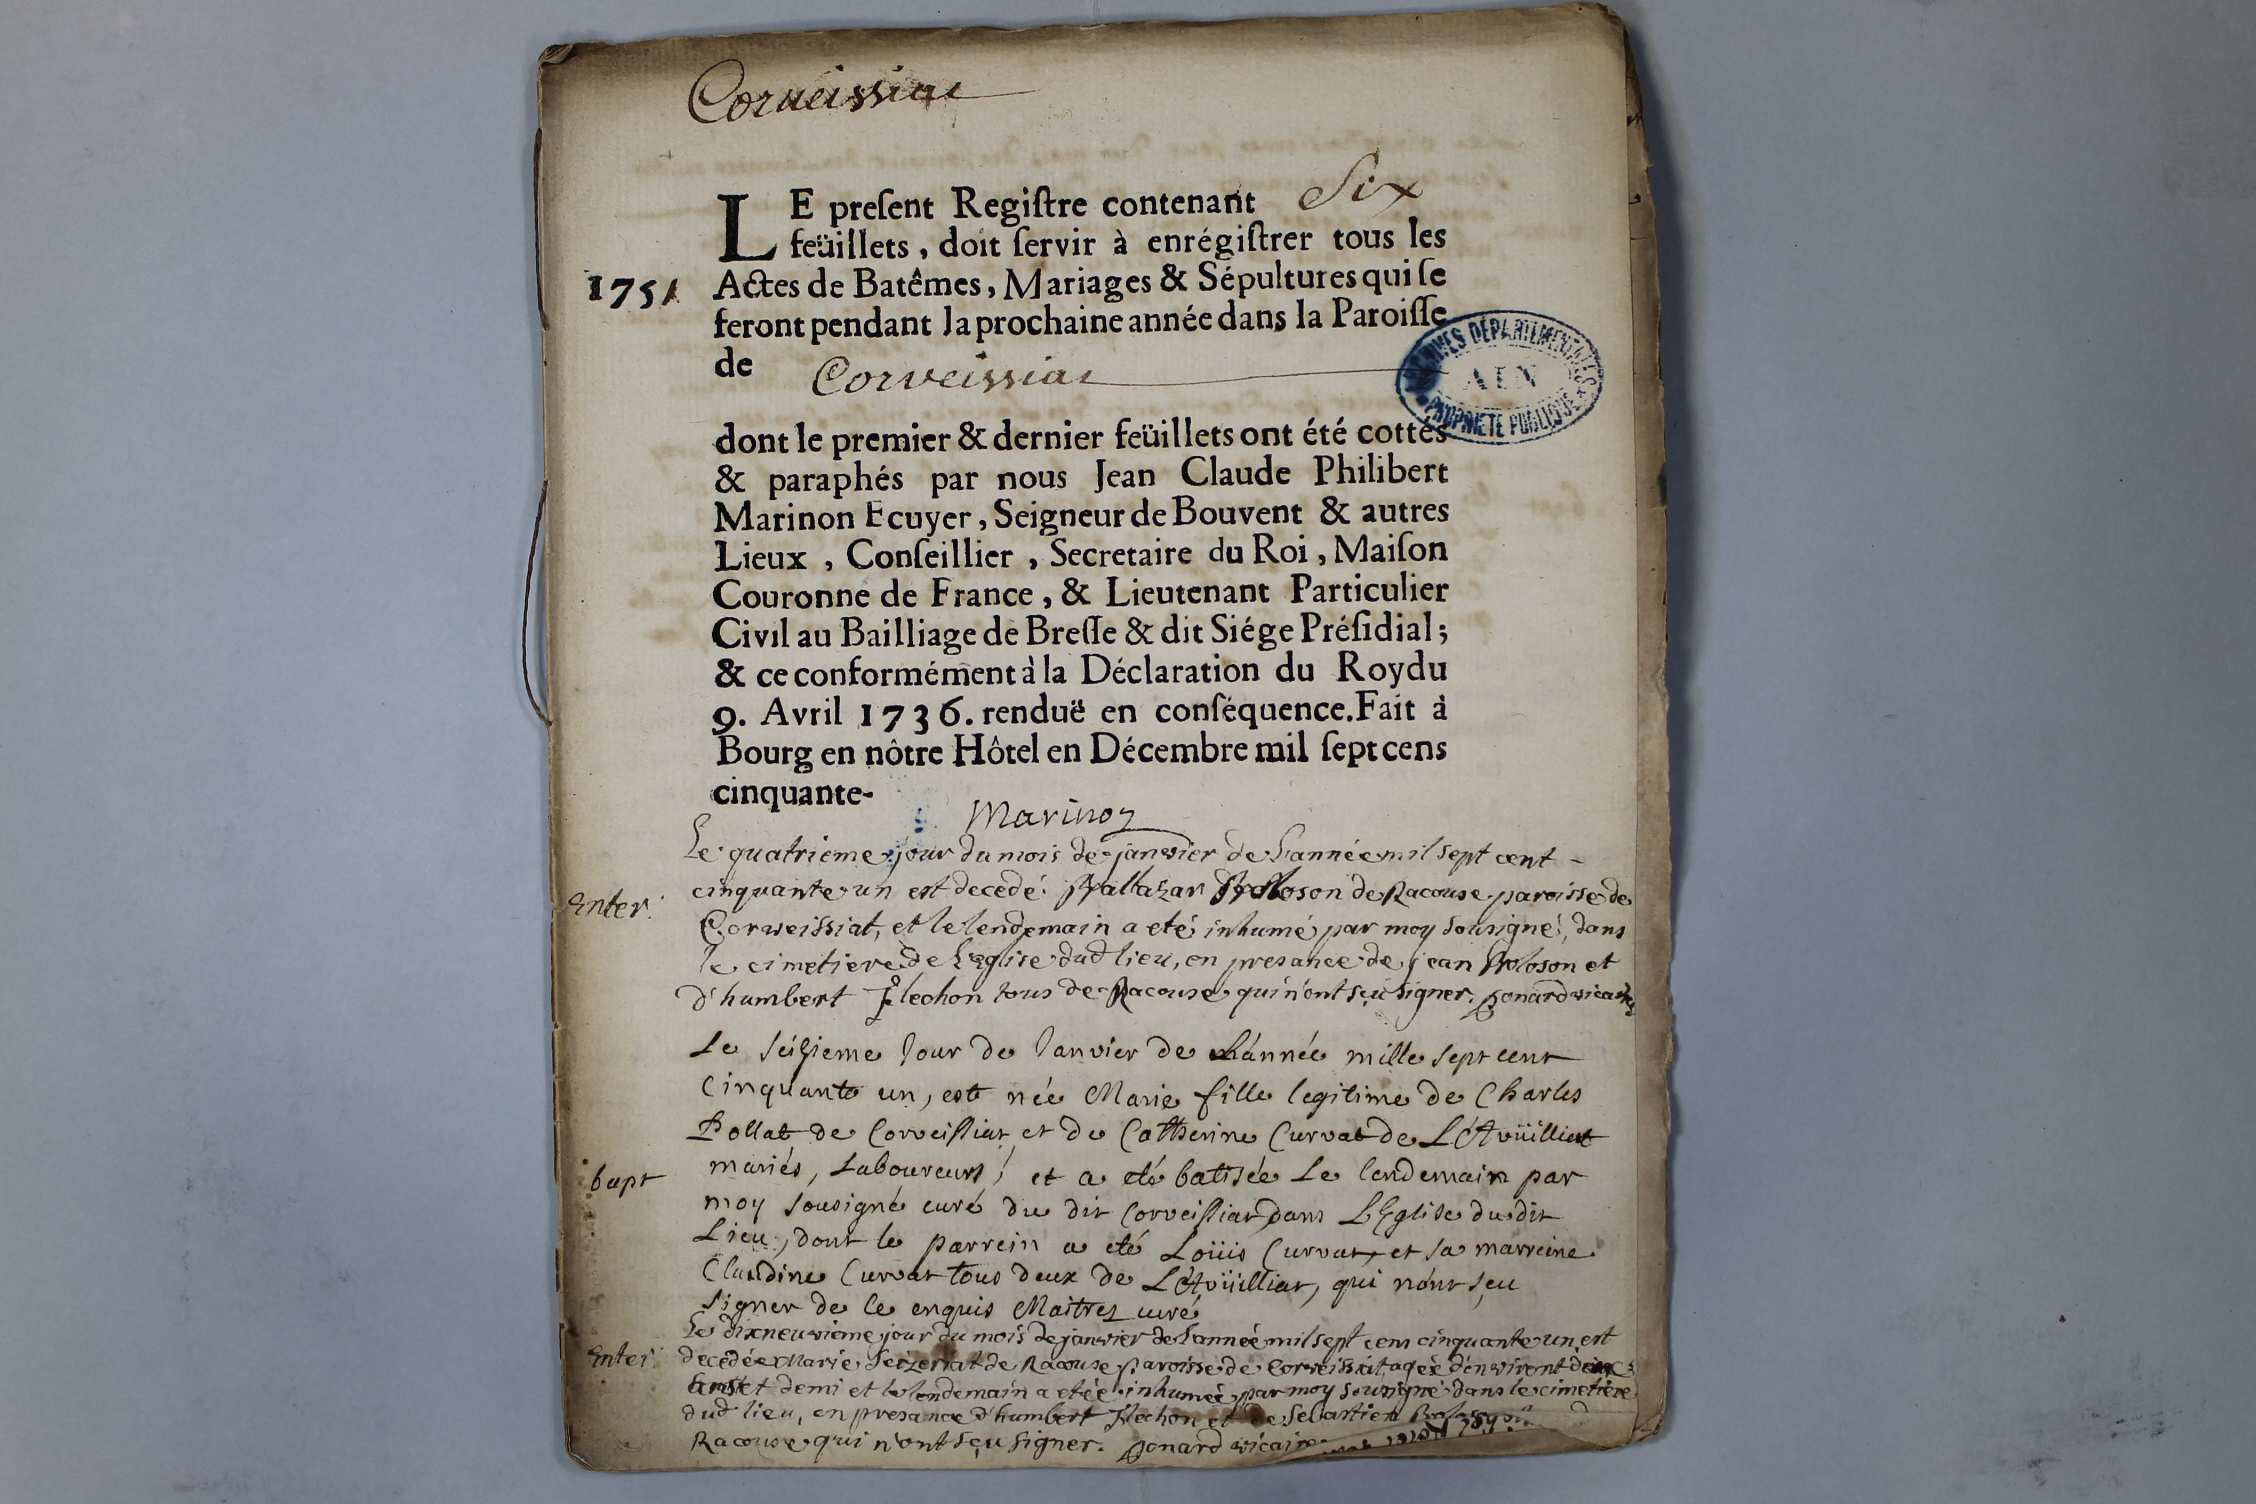 Corveissiat
LE preſent Regiſtre contenant Six
feüillets, doit ſervir à enrégiſtrer tous les
1751 Actes de Batêmes, Mariages & Sépultures qui ſe
feront pendant la prochaine année dans la Paroiſſe
de Corveissiat
ARCHIVES DÉPARTEMENTALES
AIN
PROPRIÉTÉ PUBLIQUE
dont le premier & dernier feüillets ont été cottés
& paraphés par nous Jean Claude Philibert
Marinon Ecuyer, Seigneur de Bouvent & autres
Lieux, Conſeillier, Secretaire du Roi, Maiſon
Couronne de France, & Lieutenant Particulier
Civil au Bailliage de Breſſe & dit Siége Préſidial;
& ce conformément à la Déclaration du Roy du
9. Avril 1736. renduë en conſéquence. Fait à
Bourg en nôtre Hôtel en Décembre mil ſept cens
cinquante-
Marinon
Le quatrieme jour du mois de janvier de L'année mil sept cent
Enter. cinquante un est decedé Baltazar de Racouse paroisse de
Corveissiat, et le lendemain a eté inhumé par moy sousigné, dans
le cimetiere de L'eglise dud lieu, en presance de jean et
d'humbert flechon tous de Racouse qui n'ont sçu signer. Bonard vicaire
Le seizieme Jour de Janvier de L'année mille sept cent
Cinquante un, este née Marie fille legitime de Charles
Pollat de Corveissiat et de Catherine Curvat de L'étoüilliat
bapt mariés, Laboureurs; et a eté batisée Le lendemain par
moy sousigné curé du dit Corveissiat dans L'Eglise du dit
Lieu, dont le parrein a eté Loüis Curvat, et sa marreine
Claudine Curvat tous deux de L'étoüilliat, qui n'ont sçu
signer de ce enquis Maitrez curé
Le dixneuvieme jour du mois de janvier de L'année mil sept cens cinquante un, est
Enter. decedée Marie de Racouse paroisse de Corveissiat agée d'environt deux
ans et demi et le lendemain a etée inhumée par moy sousigné dans le cimetiere
dud lieu, en presance d'humbert flechon et de Sebastien
Racouse qui n'ont sçu signer. Bonard vicaire